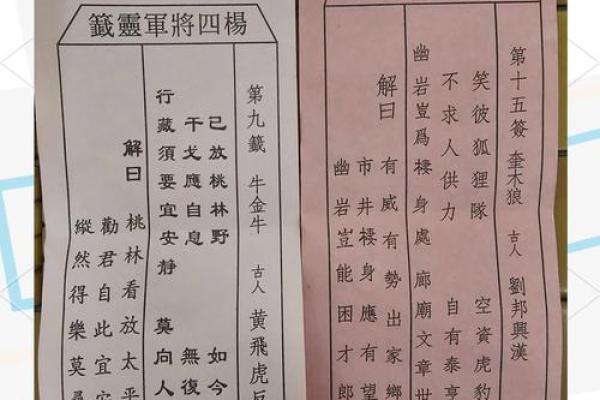 第十五簽 奎木狼 古人 劉邦興漢
笑彼狐狸隊 空資虎豹
不求人供力 自有泰亨
幽岩豈爲棲身處 廊廟文章世
解曰
有威有勢出家鄉
市井棲身應有望
幽岩豈能困才郎
楊四將軍靈籤
第九籤 牛金牛 古人 黃飛虎反
已放桃林野 如今
干戈應自息 無復
行藏須要宜安靜 莫向人
解曰
桃林看放太平
勸君自此宜
縱然得樂莫